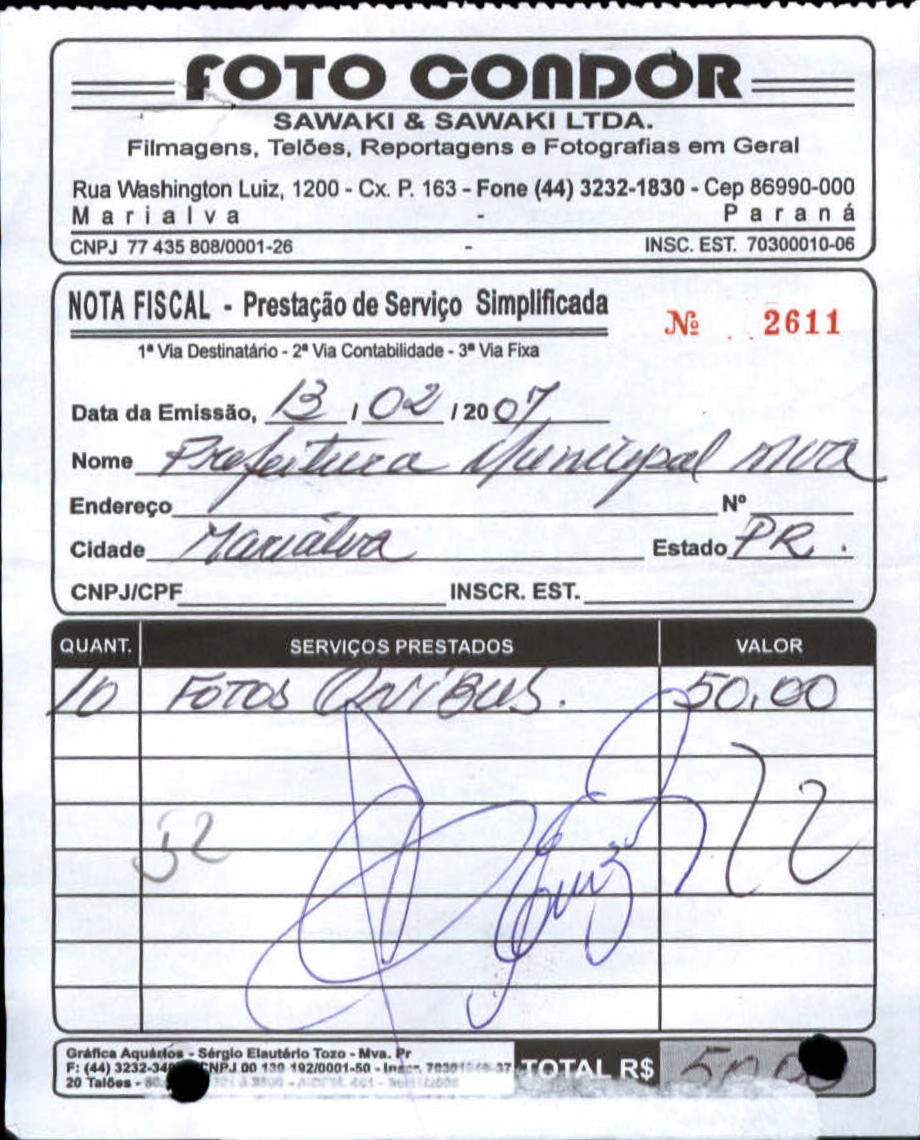 FOTO CONDOR
SAWAKI & SAWAKI LTDA.
Filmagens, Telões, Reportagens e Fotografias em Geral
Rua Washington Luiz, 1200 - Cx. P. 163 - Fone (44) 3232-1830 - Cep 86990-000
Marialva - Paraná
CNPJ 77 435 808/0001-26 - INSC. EST. 70300010-06
NOTA FISCAL - Prestação de Serviço Simplificada
Nº 2611
1ª Via Destinatário - 2ª Via Contabilidade - 3ª Via Fixa
Data da Emissão, 13 / 02 / 2007
Nome Prefeitura Municipal MVA
Endereço Nº
Cidade Marialva Estado PR.
CNPJ/CPF INSCR. EST.
QUANT. SERVIÇOS PRESTADOS VALOR
10 FOTOS ONIBUS. 50,00
52
Gráfica Aquários - Sérgio Elautério Tozo - Mva. Pr
F: (44) CNPJ 00 130 192/0001-50
20 Talões
TOTAL R$ 50,00